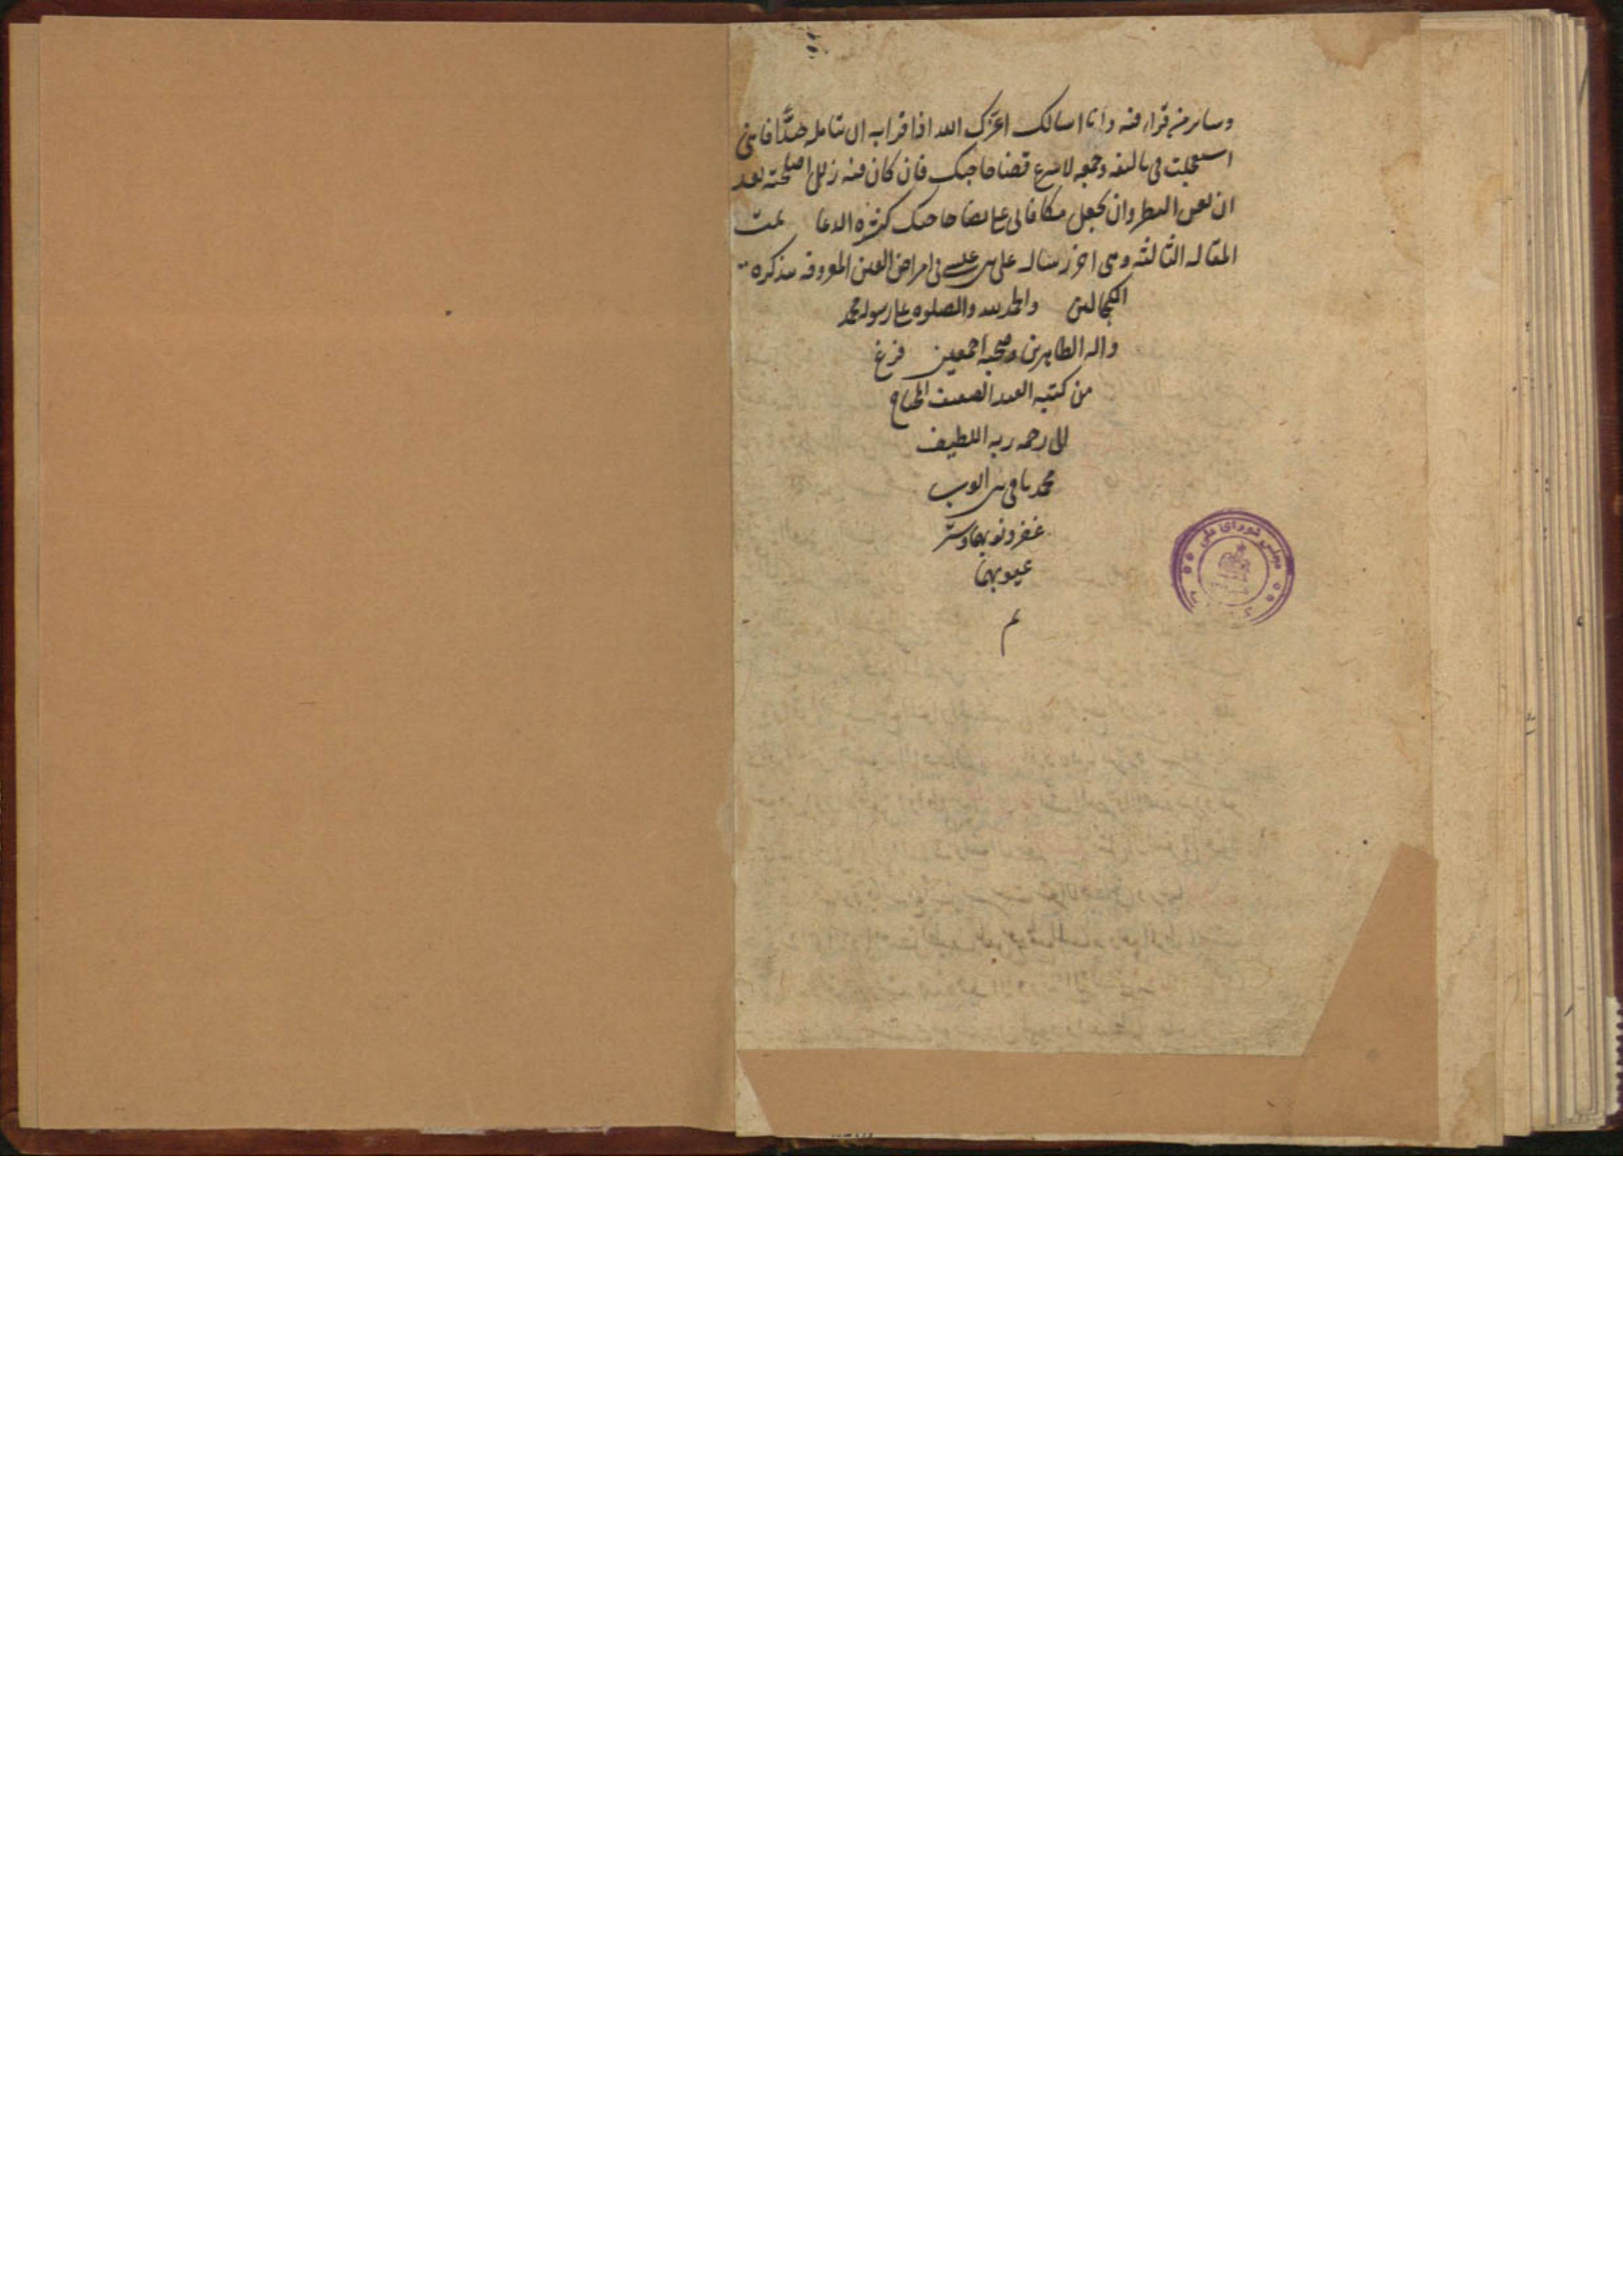 وسائر من قراه فيه وانا اسالك اعزك الله اذا قراته ان تتامله جدا فانني
استعجلت في تاليفه وجمعه لاسرع قضا حاجتك فان كان فيه زلل اصلحته بعد
ان تعمل النظر وان تجعل مكافاتي على قضا حاجتك كثره الدعا تمت
المقاله الثالثه وهي اخر رساله علي بن عيسى في امراض العين المعروفه بتذكره
الكحالين والحمد لله والصلوه على رسوله محمد
واله الطاهرين وصحبه اجمعين فرغ
من كتبه العبد الضعيف المحتاج
الى رحمه ربه اللطيف
محمد باقي بن
غفر ذنوبهما وستر
عيوبهما
م
مجلس شورای ملی